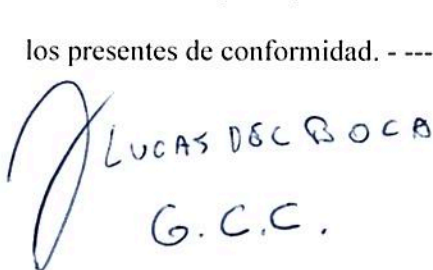 los presentes de conformidad. - ----
LUCAS DEL BOCA
G.C.C.